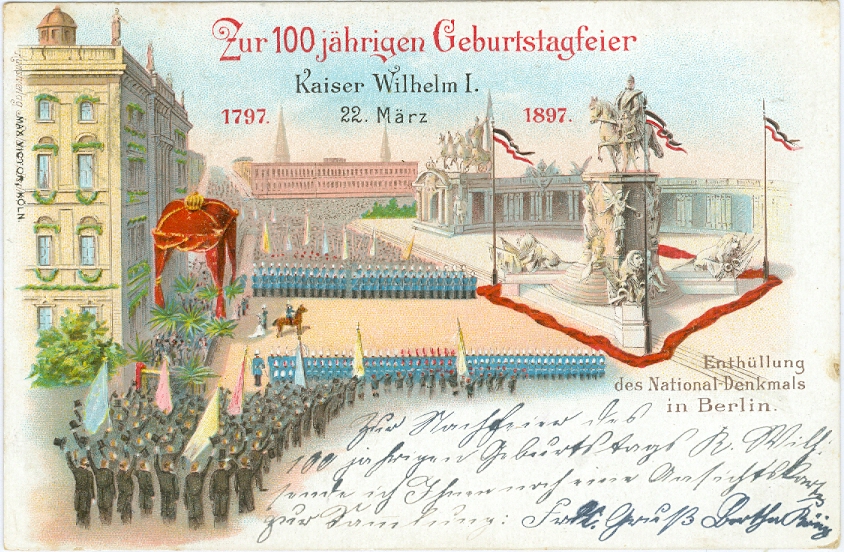 Zur 100 jährigen Geburtstagfeier
Kaiser Wilhelm I.
1797. 22. März 1897.
MAX VICTOR, KÖLN.
Enthüllung
des National-Denkmals
in Berlin.
Zur Nachfeier des
100 jährigen Geburtstags K. Wilh:
sende ich Ihnen noch eine Ansichtskarte
zur Sammlung: Gruß Bertha